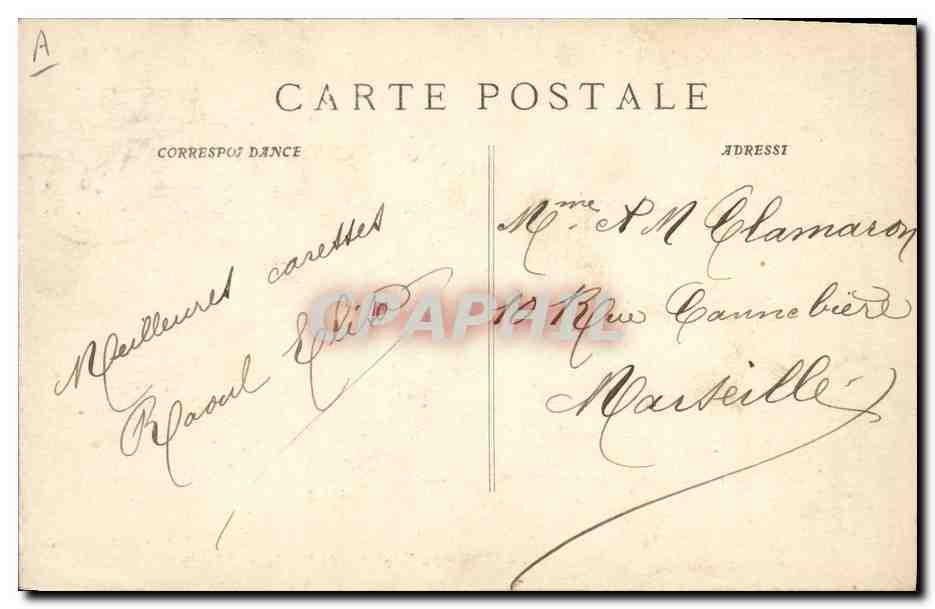 A
CARTE POSTALE
CORRESPONDANCE
ADRESSE
Meilleures caresses
Raoul
Mme A M Clamaron
10 Rue Cannebière
Marseille
CPAPHIL